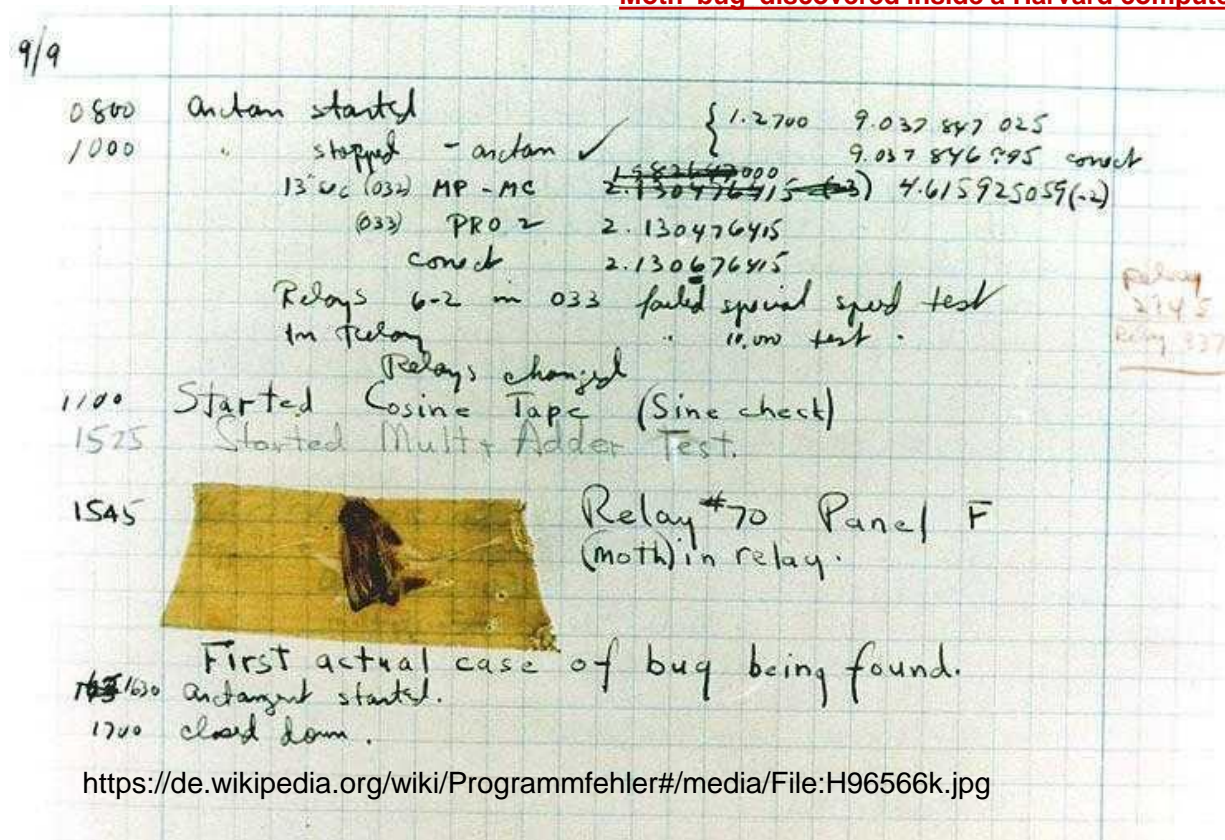 Moth 'bug' discovered inside a Harvard compute
9/9
0800 arctan started { 1.2700 9.037 847 025
1000 " stopped - arctan ✓ 9.037 846 995 correct
13" uc (032) MP - MC 1.982647000 2.130476415 (-3) 4.615925059(-2)
(033) PRO 2 2.130476415
correct 2.130676415
Relays 6-2 in 033 failed special speed test
In Relay " 10.000 test .
Relay
2145
Relay 337
Relays changed
1100 Started Cosine Tape (Sine check)
1525 Started Mult + Adder Test.
1545 Relay #70 Panel F
(moth) in relay.
First actual case of bug being found.
1630 arctangent started.
1700 closed down .
https://de.wikipedia.org/wiki/Programmfehler#/media/File:H96566k.jpg